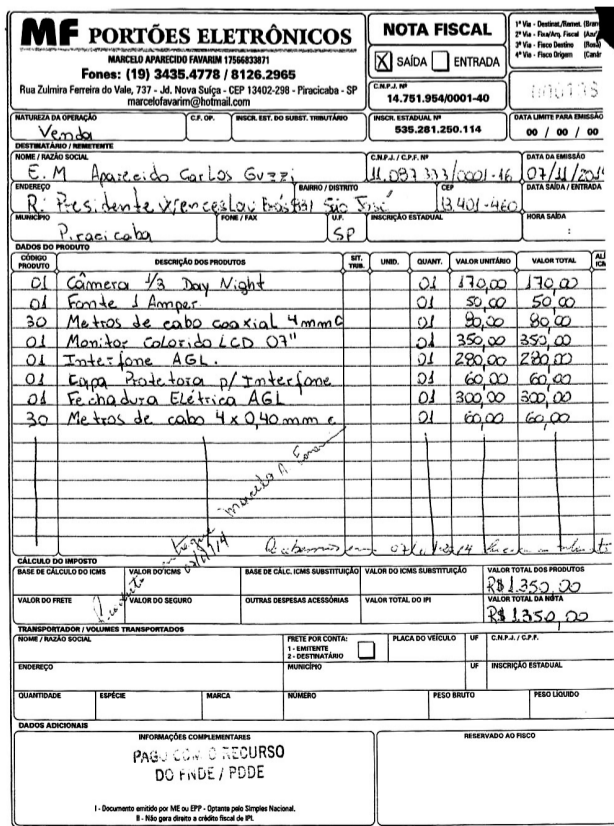 MF PORTÕES ELETRÔNICOS
MARCELO APARECIDO FAVARIM 17566833871
Fones: (19) 3435.4778 / 8126.2965
Rua Zulmira Ferreira do Vale, 737 - Jd. Nova Suíça - CEP 13402-298 - Piracicaba - SP
marcelofavarim@hotmail.com
NOTA FISCAL
X SAÍDA ENTRADA
C.N.P.J. Nº
14.751.954/0001-40
1ª Via - Destinat./Remet. (Bran
2ª Via - Fixa/Arq. Fiscal (Azul
3ª Via - Fisco Destino (Rosa)
4ª Via - Fisco Origem
NATUREZA DA OPERAÇÃO C.F. OP. INSCR. EST. DO SUBST. TRIBUTÁRIO INSCR. ESTADUAL Nº DATA LIMITE PARA EMISSÃO
Venda 535.281.250.114 00 / 00 / 00
DESTINATÁRIO / REMETENTE
NOME / RAZÃO SOCIAL C.N.P.J. / C.P.F. Nº DATA DA EMISSÃO
E.M Aparecido Carlos Guzzi 11.097.333/0001-16 07/11/2014
ENDEREÇO BAIRRO / DISTRITO CEP DATA SAÍDA / ENTRADA
R. Presidente São José 13.401-460
MUNICÍPIO FONE / FAX U.F. INSCRIÇÃO ESTADUAL HORA SAÍDA
Piracicaba SP :
DADOS DO PRODUTO
CÓDIGO PRODUTO DESCRIÇÃO DOS PRODUTOS SIT. TRIB. UNID. QUANT. VALOR UNITÁRIO VALOR TOTAL
01 Câmera 1/3 Day Night 01 170,00 170,00
01 Fonte 1 Amper 01 50,00 50,00
30 Metros de cabo coaxial 4mm C 01 80,00 80,00
01 Monitor Colorido LCD 07" 01 350,00 350,00
01 Interfone AGL. 01 280,00 280,00
01 Capa Protetora p/ Interfone 01 60,00 60,00
01 Fechadura Elétrica AGL 01 300,00 300,00
30 Metros de cabo 4x0,40mm c 01 60,00 60,00
Marcelo A.
Recebemos em 07/11/2014
CÁLCULO DO IMPOSTO
BASE DE CÁLCULO DO ICMS VALOR DO ICMS BASE DE CÁLC. ICMS SUBSTITUIÇÃO VALOR DO ICMS SUBSTITUIÇÃO VALOR TOTAL DOS PRODUTOS
R$1.350,00
VALOR DO FRETE VALOR DO SEGURO OUTRAS DESPESAS ACESSÓRIAS VALOR TOTAL DO IPI VALOR TOTAL DA NOTA
R$1.350,00
TRANSPORTADOR / VOLUMES TRANSPORTADOS
NOME / RAZÃO SOCIAL FRETE POR CONTA: PLACA DO VEÍCULO UF C.N.P.J. / C.P.F.
1 - EMITENTE
2 - DESTINATÁRIO
ENDEREÇO MUNICÍPIO UF INSCRIÇÃO ESTADUAL
QUANTIDADE ESPÉCIE MARCA NÚMERO PESO BRUTO PESO LÍQUIDO
DADOS ADICIONAIS
INFORMAÇÕES COMPLEMENTARES RESERVADO AO FISCO
PAGO COM O RECURSO
DO FNDE / PDDE
I - Documento emitido por ME ou EPP - Optante pelo Simples Nacional.
II - Não gera direito a crédito fiscal de IPI.